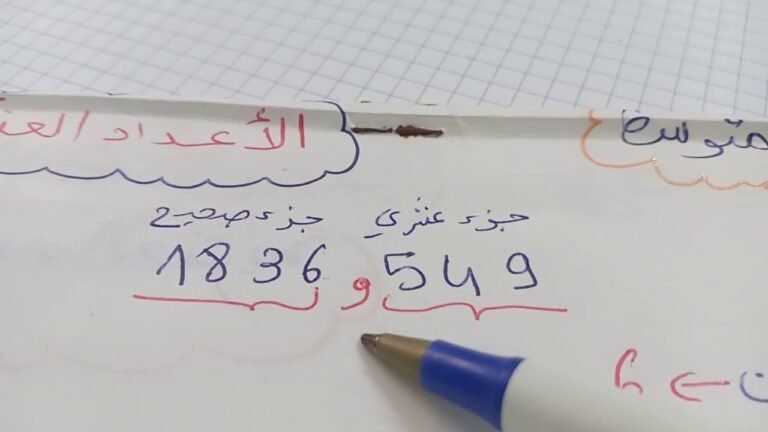 الأعداد العشـ
متوسط
جزء صحيح جزء عشري
1836,549